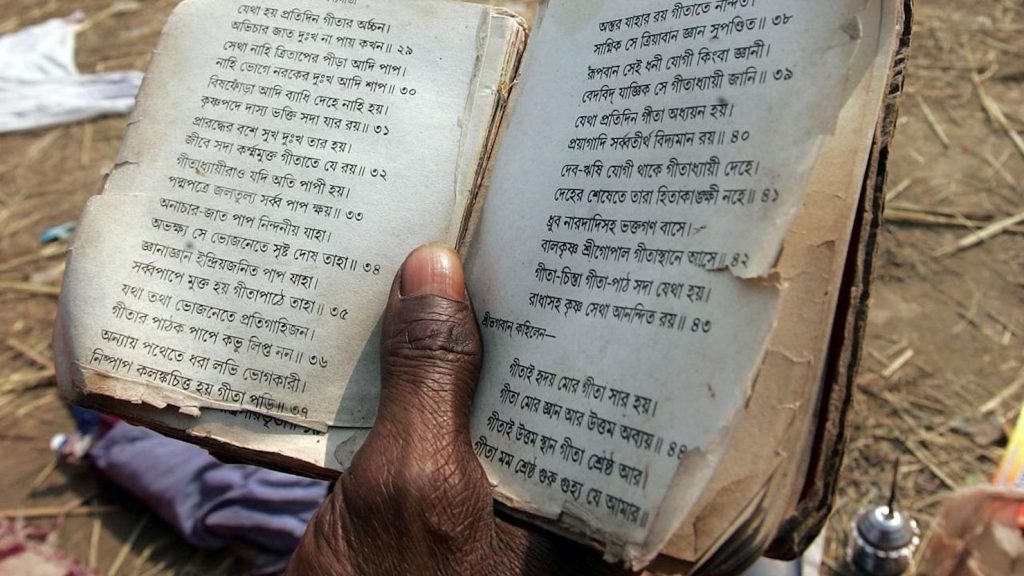 যেথা হয় প্রতিদিন গীতার অর্চ্চন।
অভিচার জাত দুঃখ না পায় কখন॥ ২৯
সেথা নাহি ত্রিতাপের পীড়া আদি পাপ।
নাহি ভোগে নরকের দুঃখ আদি শাপ॥ ৩০
বিষফোঁড়া আদি ব্যাধি দেহে নাহি হয়।
কৃষ্ণপদে দাস্য ভক্তি সদা যার রয়॥ ৩১
প্রারব্ধের বশে সুখ দুঃখ তার হয়।
জীবে সদা কর্ম্মমুক্ত গীতাতে যে রয়॥ ৩২
গীতাধ্যায়ীরাও যদি অতি পাপী হয়।
পদ্মপত্রে জলতুল্য সর্ব্ব পাপ ক্ষয়॥ ৩৩
অনাচার-জাত পাপ নিন্দনীয় যাহা।
অভক্ষ্য সে ভোজনেতে সৃষ্ট দোষ তাহা॥ ৩৪
জ্ঞানাজ্ঞান ইন্দ্রিয়জনিত পাপ যাহা।
সর্ব্বপাপে মুক্ত হয় গীতাপাঠে তাহা॥ ৩৫
যথা তথা ভোজনেতে প্রতিগাহিজন।
গীতার পাঠক পাপে কভু লিপ্ত নন॥ ৩৬
অন্যায় পথেতে ধরা লভি ভোগকারী।
নিষ্পাপ কলঙ্কচিত্ত হয় গীতা পড়ি॥ ৩৭
অন্তর যাহার রয় গীতাতে নন্দিত।
সাগ্নিক সে ক্রিয়াবান জ্ঞান সুপণ্ডিত॥ ৩৮
রূপবান সেই ধনী যোগী কিংবা জ্ঞানী।
বেদবিদ্ যাজ্ঞিক সে গীতাধ্যায়ী জানি॥ ৩৯
যেথা প্রতিদিন গীতা অধ্যয়ন হয়।
প্রয়াগাদি সর্ব্বতীর্থ বিদ্যমান রয়॥ ৪০
দেব-ঋষি যোগী থাকে গীতাধ্যায়ী দেহে।
দেহের শেষেতে তারা হিতাকাঙক্ষী নহে॥ ৪১
ধ্রুব নারদাদিসহ ভক্তগণ বাসে।
বালকৃষ্ণ শ্রীগোপাল গীতাস্থানে আসে॥ ৪২
গীতা-চিন্তা গীতা-পাঠ সদা যেথা হয়।
রাধাসহ কৃষ্ণ সেথা আনন্দিত রয়॥ ৪৩
শ্রীভগবান্ কহিলেন—
গীতাই হৃদয় মোর গীতা সার হয়।
গীতা মোর জ্ঞান আর উত্তম অব্যয়॥ ৪৪
গীতাই উত্তম স্থান গীতা শ্রেষ্ঠ আর।
গীতা মম শ্রেষ্ঠ গুরু গুহ্য যে আমার॥